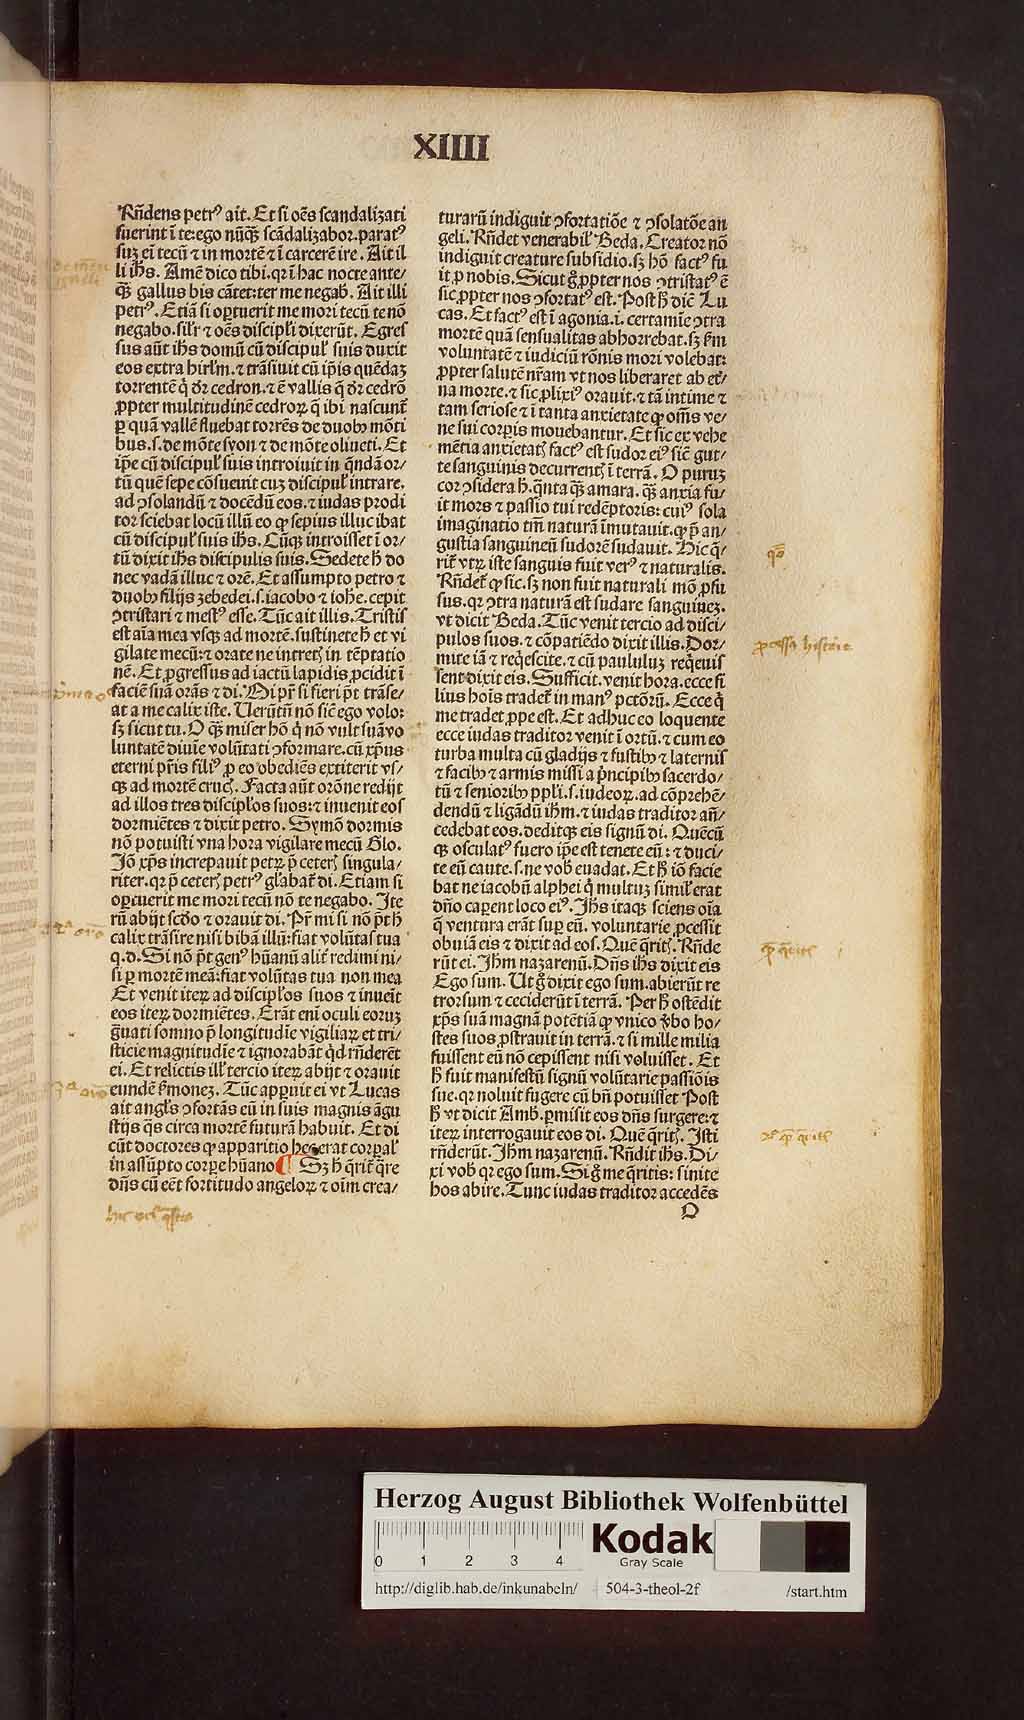 XIIII
Rñdens petrꝰ ait. Et si oẽs scandalizati
fuerint ĩ te: ego nũqꝫ scãdalizabor. paratꝰ
suꝫ eĩ tecũ ⁊ in mortẽ ⁊ ĩ carcerẽ ire. Ait il
li ihs. Amẽ dico tibi. qr ĩ hac nocte ante/
qꝫ gallus bis cãtet: ter me negab. Ait illi
petrꝰ. Etiã si oꝑtuerit me mori tecũ te nõ
negabo. silr ⁊ oẽs discipl'i dixerũt. Egres
sus aũt ihs domũ cũ discipul' suis duxit
eos extra hirl'm. ⁊ trãsiuit cũ ip̃is quẽdaꝫ
torrentẽ q̇ dr cedron. ⁊ ẽ vallis q̇ dr cedrõ
ꝓpter multitudinẽ cedroꝝ q̃ ibi nascunt̃
ꝑ quã vallẽ fluebat torrẽs de duobꝰ mõti
bus. s. de mõte syon ⁊ de mõte oliueti. Et
ip̃e cũ discipul' suis introiuit in q̃ndã or/
tũ quẽ sepe cõsueuit cuꝫ discipul' intrare.
ad ꝯsolandũ ⁊ docẽdũ eos. ⁊ iudas prodi
tor sciebat locũ illũ eo ꝙ sepius illuc ibat
cũ discipul' suis ihs. Cũqꝫ introisset ĩ or/
tũ dixit ihs discipulis suis. Sedete h̃ do
nec vadã illuc ⁊ orẽ. Et assumpto petro ⁊
duobꝰ filijs zebedei. s. iacobo ⁊ iohe. cepit
ꝯtristari ⁊ mestꝰ esse. Tũc ait illis. Tristis
est aĩa mea vsqꝫ ad mortẽ. sustinete h̃ et vi
gilate mecũ: ⁊ orate ne intretꝭ in tẽptatio
nẽ. Et ꝓgressus ad iactũ lapidis ꝓcidit ĩ
faciẽ suã orãs ⁊ di. Mi pr̃ si fieri põt trãse/
at a me calix iste. Verũtñ nõ sic̃ ego volo:
sꝫ sicut tu. O qꝫ miser hõ q̇ nõ vult suã vo
luntatẽ diuĩe volũtati ꝯformare. cũ xp̃us
eterni pr̃is filiꝰ ꝓ eo obediẽs extiterit vs/
qꝫ ad mortẽ crucꝭ. Facta aũt orõne redijt
ad illos tres discipl'os suos: ⁊ inuenit eos
dormiẽtes ⁊ dixit petro. Symõ dormis
nõ potuisti vna hora vigilare mecũ Glo.
Jõ xp̃s increpauit petꝝ p̃ ceterꝭ singula/
riter. qr p̃ ceterꝭ petrꝰ glabat̃ di. Etiam si
oꝑtuerit me mori tecũ nõ te negabo. Ite
rũ abijt scđo ⁊ orauit di. Pr̃ mi si nõ põt h̃
calix trãsire nisi bibã illũ: fiat volũtas tua
q. d. Si nõ põt genꝰ hũanũ alit̃ redimi ni/
si ꝑ mortẽ meã: fiat volũtas tua non mea
Et venit iteꝝ ad discipl'os suos ⁊ inueĩt
eos iteꝝ dormiẽtes. Erãt enĩ oculi eoruꝫ
g̃uati somno p̃ longitudĩe vigiliaꝝ et tri/
sticie magnitudĩe ⁊ ignorabãt q̇d rñderẽt
ei. Et relictis ill' tercio iteꝝ abijt ⁊ orauit
eundẽ ẜmoneꝫ. Tũc apꝑuit ei vt Lucas
ait angl's ꝯfortãs eũ in suis magnis ãgu
stijs q̃s circa mortẽ futurã habuit. Et di
cũt doctores ꝙ apparitio hec erat corpal'
in assũpto corpꝑe hũano ¶ Sꝫ h̃ q̃rit̃ q̃re
dñs cũ eẽt fortitudo angeloꝝ ⁊ oĩm crea/
turarũ indiguit ꝯfortatiõe ⁊ ꝯsolatõe an
geli. Rñdet venerabil' Beda. Creator nõ
indiguit creature subsidio. sꝫ hõ factꝰ fu
it ꝓ nobis. Sicut g̃ ꝓpter nos ꝯtristatꝰ ẽ
sic ꝓpter nos ꝯfortatꝰ est. Post h̃ diẽ Lu
cas. Et factꝰ est ĩ agonia. i. certamĩe ꝯtra
mortẽ quã sensualitas abhorrebat. sꝫ ẜm
voluntatẽ ⁊ iudiciũ rõnis mori volebat:
ꝓpter salutẽ nr̃am vt nos liberaret ab et̾/
na morte. ⁊ sic ꝓlixiꝰ orauit. ⁊ tã intime ⁊
tam seriose ⁊ ĩ tanta anxietate ꝙ oms̃ ve/
ne sui corꝑis mouebantur. Et sic ex vehe
mẽtia anxietatꝭ factꝰ est sudor eiꝰ sic̃ gut/
te sanguinis decurrentꝭ ĩ terrã. O puruꝫ
cor ꝯsidera h̃. q̃nta qꝫ amara. qꝫ anxia fu/
it mors ⁊ passio tui redẽptoris: cuiꝰ sola
imaginatio tm̃ naturã ĩmutauit. ꝙ p̃ an/
gustia sanguineũ sudorẽ sudauit. Hic q̃/
rit̃ vtꝝ iste sanguis fuit verꝰ ⁊ naturalis.
Rñdet̃ ꝙ sic. sꝫ non fuit naturali mõ ꝓfu
sus. qr ꝯtra naturã est sudare sanguineꝫ.
vt dicit Beda. Tũc venit tercio ad disci/
pulos suos. ⁊ cõpatiẽdo dixit illis. Dor/
mite iã ⁊ reqẽscite. ⁊ cũ paululuꝫ req̇euis
sent dixit eis. Sufficit. venit hora. ecce fi
lius hoĩs tradet̃ in manꝰ pctõrũ. Ecce q̇
me tradet ꝓpe est. Et adhuc eo loquente
ecce iudas traditor venit ĩ ortũ. ⁊ cum eo
turba multa cũ gladijs ⁊ fustibꝰ ⁊ laternis
⁊ facibꝰ ⁊ armis missi a p̃ncipibꝰ sacerdo/
tũ ⁊ senioribꝰ ppl'i. s. iudeoꝝ. ad cõprehẽ/
dendũ ⁊ ligãdũ ihm. ⁊ iudas traditor añ/
cedebat eos. deditqꝫ eis signũ di. Quẽcũ
qꝫ osculatꝰ fuero ip̃e est tenete eũ: ⁊ duci/
te eũ caute. s. ne vob̾ euadat. Et h̃ iõ facie
bat ne iacobũ alphei q̇ multuꝫ simil' erat
dño caꝑent loco eiꝰ. Jhs itaqꝫ sciens oĩa
q̃ ventura erãt suꝑ eũ. voluntarie ꝓcessit
obuiã eis ⁊ dixit ad eos. Quẽ q̃ritꝭ. Rñde
rũt ei. Jhm nazarenũ. Dñs ihs dixit eis
Ego sum. Ut g̃ dixit ego sum. abierũt re
trorsum ⁊ ceciderũt ĩ terrã. Per h̃ ostẽdit
xp̃s suã magnã potẽtiã ꝙ vnico v̾bo ho/
stes suos ꝓstrauit in terrã. ⁊ si mille milia
fuissent eũ nõ cepissent nisi voluisset. Et
h̃ fuit manifestũ signũ volũtarie passiõis
sue. qr noluit fugere cũ bñ potuisset Post
h̃ vt dicit Amb. ꝑmisit eos dñs surgere: ⁊
iteꝝ interrogauit eos di. Quẽ q̃ritꝭ. Isti
rñderũt. Jhm nazarenũ. Rñdit ihs. Di/
xi vob̾ qr ego sum. Si g̃ me q̃ritis: sinite
hos abire. Tunc iudas traditor accedẽs
O
Herzog August Bibliothek Wolfenbüttel
0 1 2 3 4
Kodak
Gray Scale
http://diglib.hab.de/inkunabeln/ 504-3-theol-2f /start.htm